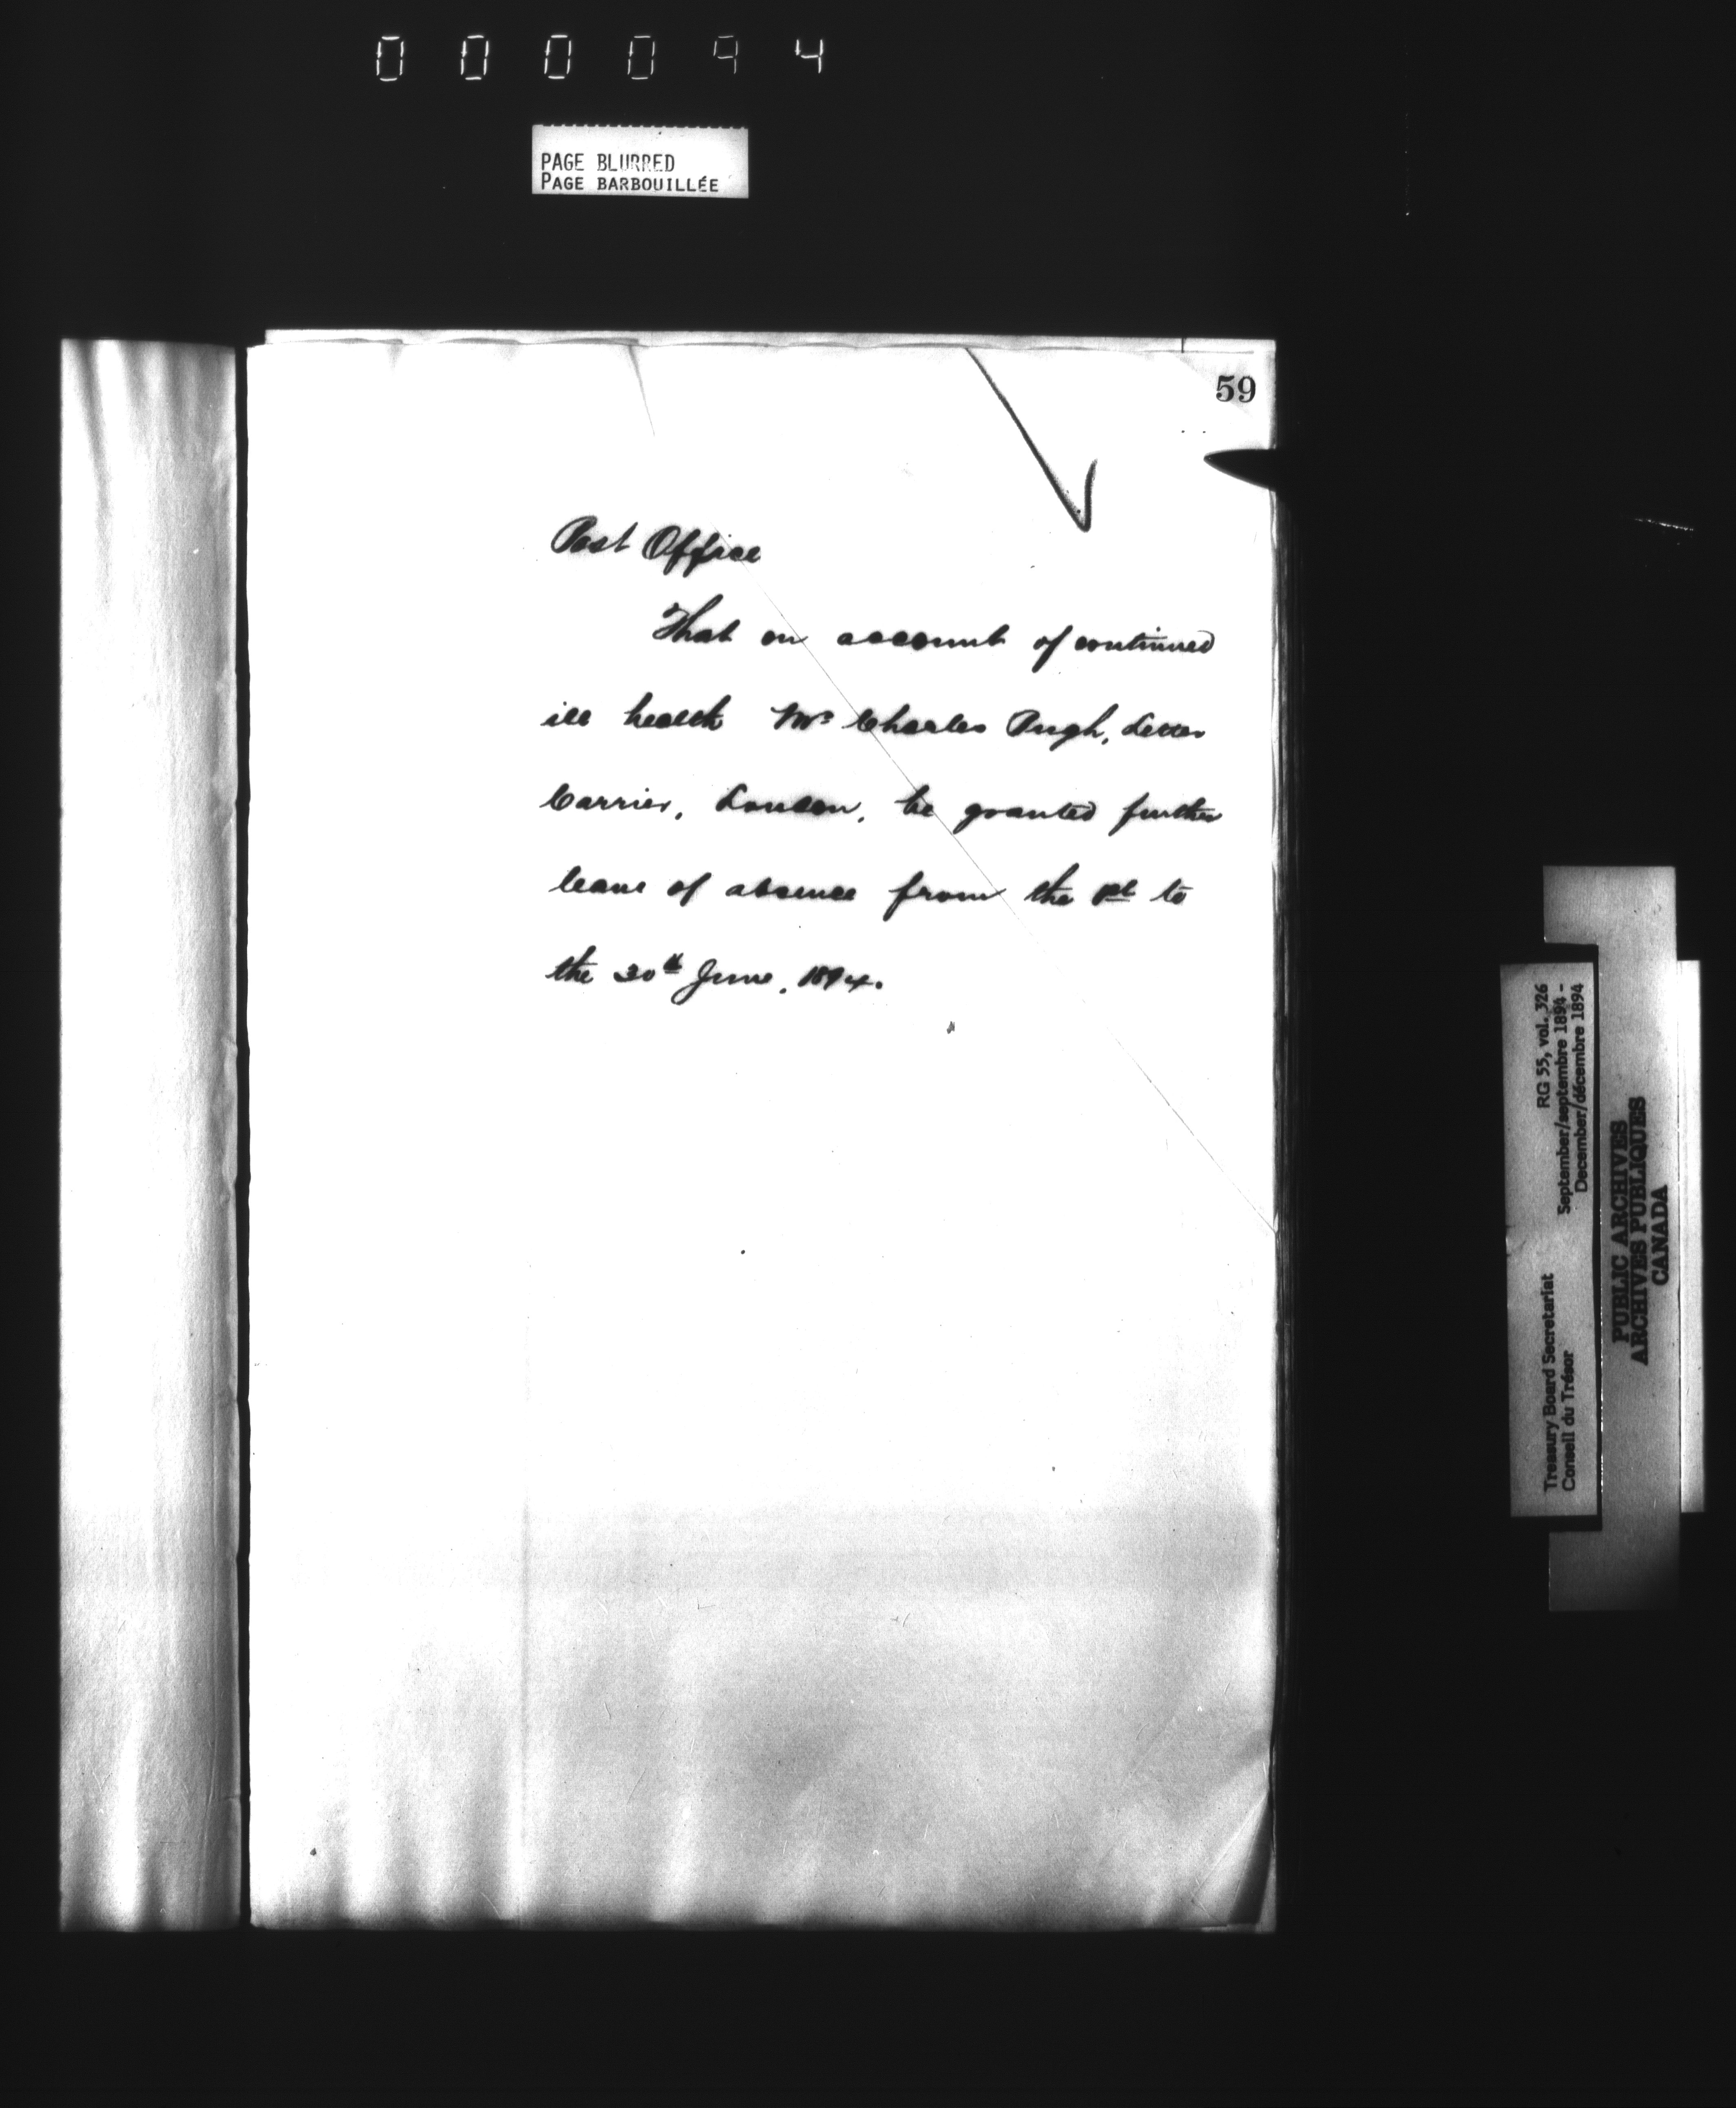 000094
PAGE BLURRED
PAGE BARBOUILLÉE
59
Post Office
That on account of continued
ill health Mr Charles Pugh, Letter
Carrier, London, be granted further
leave of absence from the 1st to
the 30th June, 1894.
Treasury Board Secretariat RG 55, vol. 326
Conseil du Trésor September/septembre 1894 -
December/décembre 1894
PUBLIC ARCHIVES
ARCHIVES PUBLIQUES
CANADA